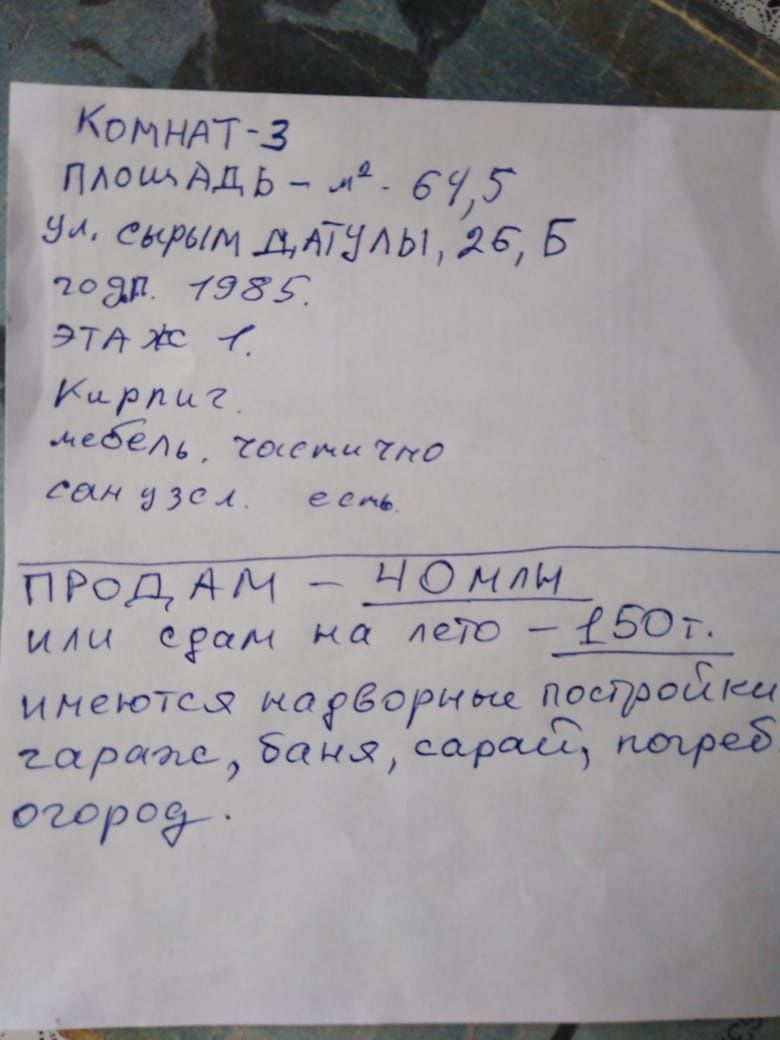 КОМНАТ-3
ПЛОЩАДЬ - м². 64,5
ул. СЫРЫМ ДАТУЛЫ, 26, Б
год.п. 1985.
ЭТАЖ 1.
Кирпич.
мебель. частично
сан узел. есть.
ПРОДАМ - 40 млн
или сдам на лето - 150 т.
имеются надворные постройки
гараж, баня, сарай, погреб.
огород.